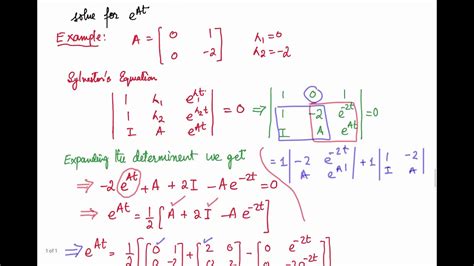 solve for e^{At}
Example: A = [0 1; 0 -2] λ₁=0 λ₂=-2
Sylvestor's Equation
|1 λ₁ e^{λ₁t}; 1 λ₂ e^{λ₂t}; I A e^{At}| = 0 ⇒ |1 0 1; 1 -2 e^{-2t}; I A e^{At}| = 0
Expanding the determinent we get
= 1 |-2 e^{-2t}; A e^{At}| + 1 |1 -2; I A|
⇒ -2 e^{At} + A + 2I - A e^{-2t} = 0
⇒ e^{At} = 1/2 [A + 2I - A e^{-2t}]
⇒ e^{At} = 1/2 [[0 1
1 of 1